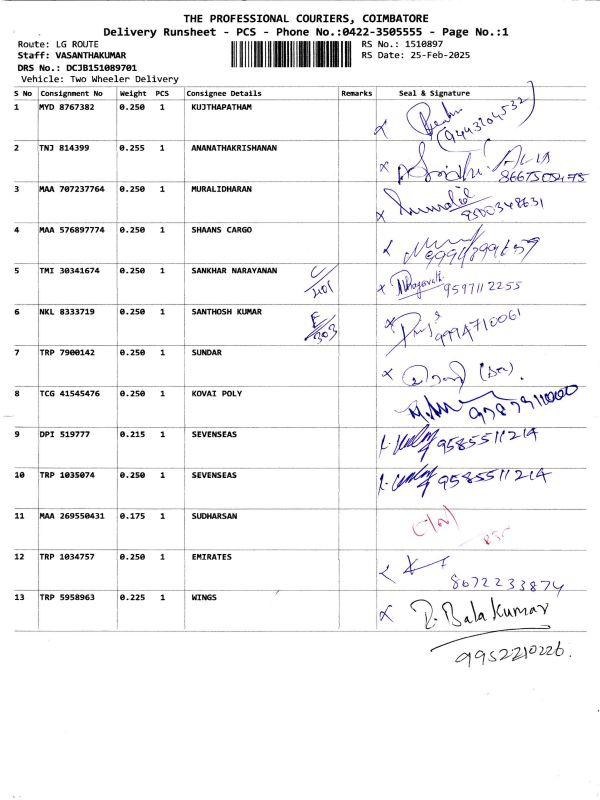 THE PROFESSIONAL COURIERS, COIMBATORE
Delivery Runsheet - PCS - Phone No.:0422-3505555 - Page No.:1
Route: LG ROUTE
RS No.: 1510897
Staff: VASANTHAKUMAR
RS Date: 25-Feb-2025
DRS No.: DCJB151089701
Vehicle: Two Wheeler Delivery
S No Consignment No Weight PCS Consignee Details Remarks Seal & Signature
1 MYD 8767382 0.250 1 KUJTHAPATHAM
(9443104532)
2 TNJ 814399 0.255 1 ANANATHAKRISHANAN
8667505475
3 MAA 707237764 0.250 1 MURALIDHARAN
9500348631
4 MAA 576897774 0.250 1 SHAANS CARGO
5 TMI 30341674 0.250 1 SANKHAR NARAYANAN C/201
9597112255
6 NKL 8333719 0.250 1 SANTHOSH KUMAR E/303
9994710061
7 TRP 7900142 0.250 1 SUNDAR
8 TCG 41545476 0.250 1 KOVAI POLY
9 DPI 519777 0.215 1 SEVENSEAS 9585511214
10 TRP 1035074 0.250 1 SEVENSEAS 9585511214
11 MAA 269550431 0.175 1 SUDHARSAN
12 TRP 1034757 0.250 1 EMIRATES
8072233874
13 TRP 5958963 0.225 1 WINGS
R. Bala Kumar
9952210226.